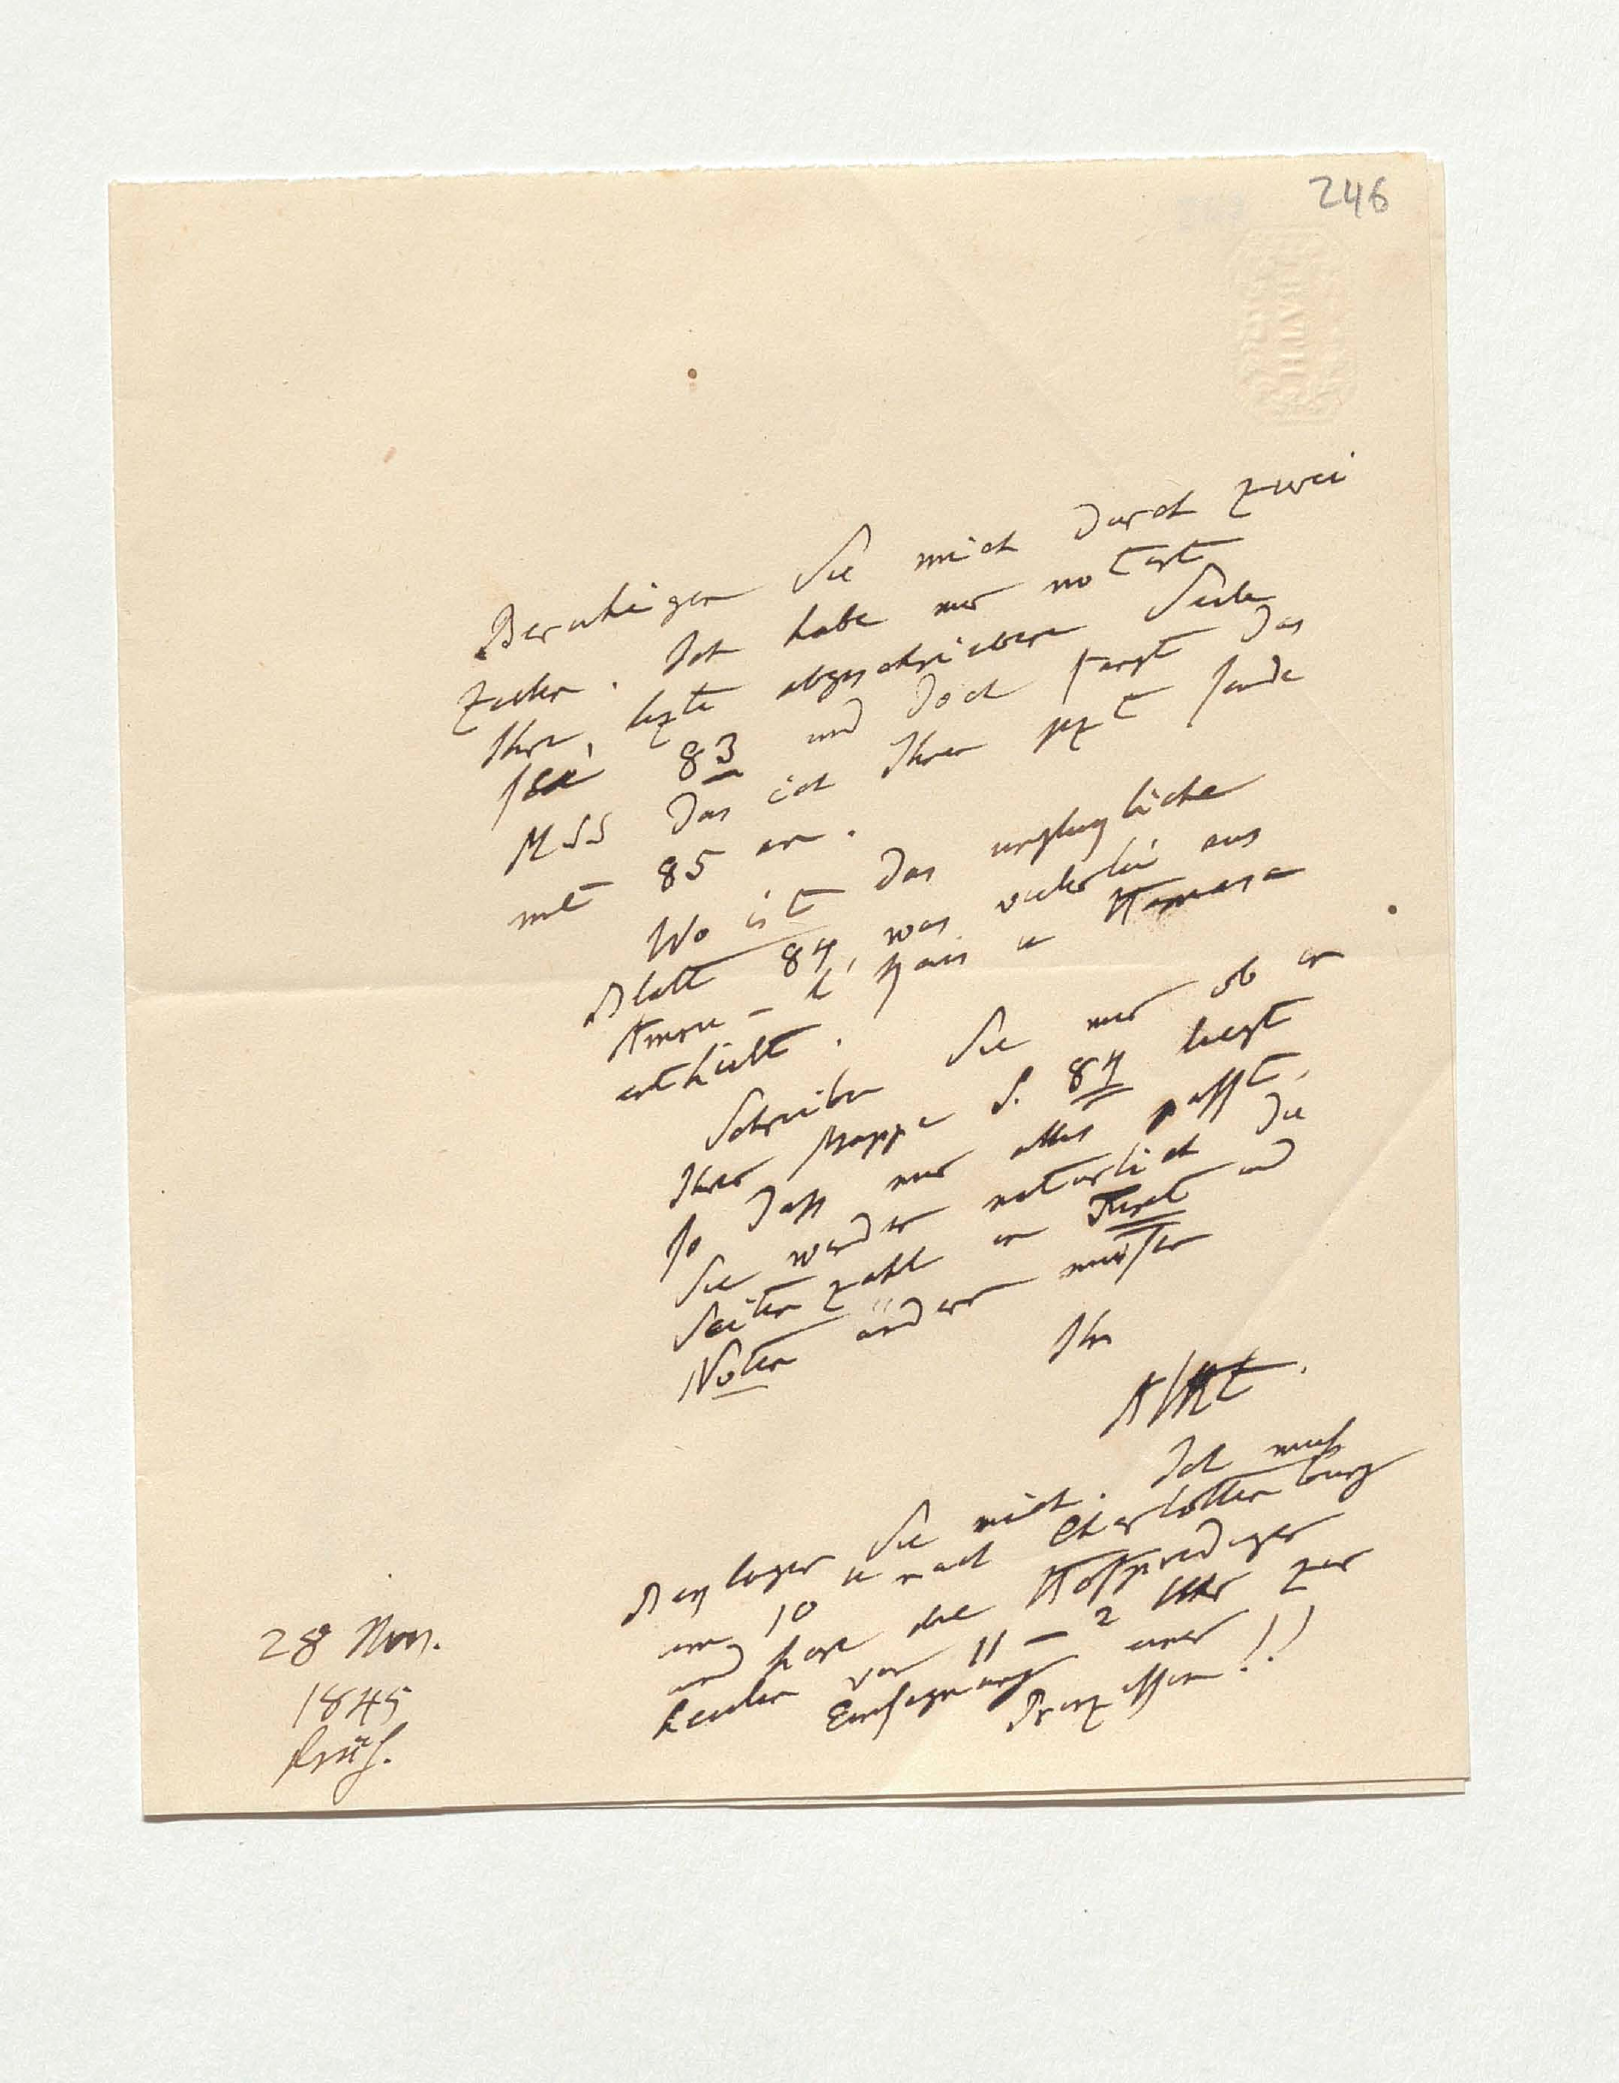 246
BATH
Beruhigen Sie mich durch zwei
Zeilen. Ich habe mir notirt
Ihre lezte abgeschriebene Seite
sei 83 und doch fängt das
MSS das ich Ihnen jezt sende
mit 85 an.
Wo ist das unglükliche
Blatt 84, was vielerlei aus
u
enthielt.
Schreiben Sie mir ob in
Ihrer Mappe S. 84 liegt
so dass nur alles passt,
Sie werden natürlich die
Seitenzahl im Text und
Noten ändern müssen
Ihr
AHt.
Beklagen Sie mich. Ich muß
um 10 u nach Charlottenburg
und höre drei Hofprediger
heulen von 11 – 2 Uhr zur
Einsegnung einer
Prinzessin!!
28 Nov.
1845
früh.